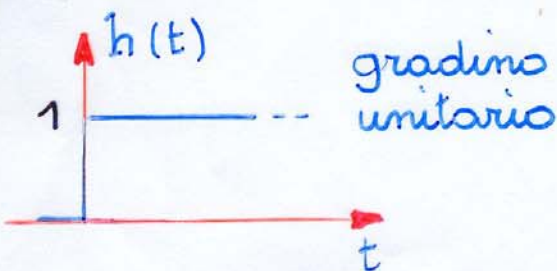 h(t)
gradino
1
unitario
t